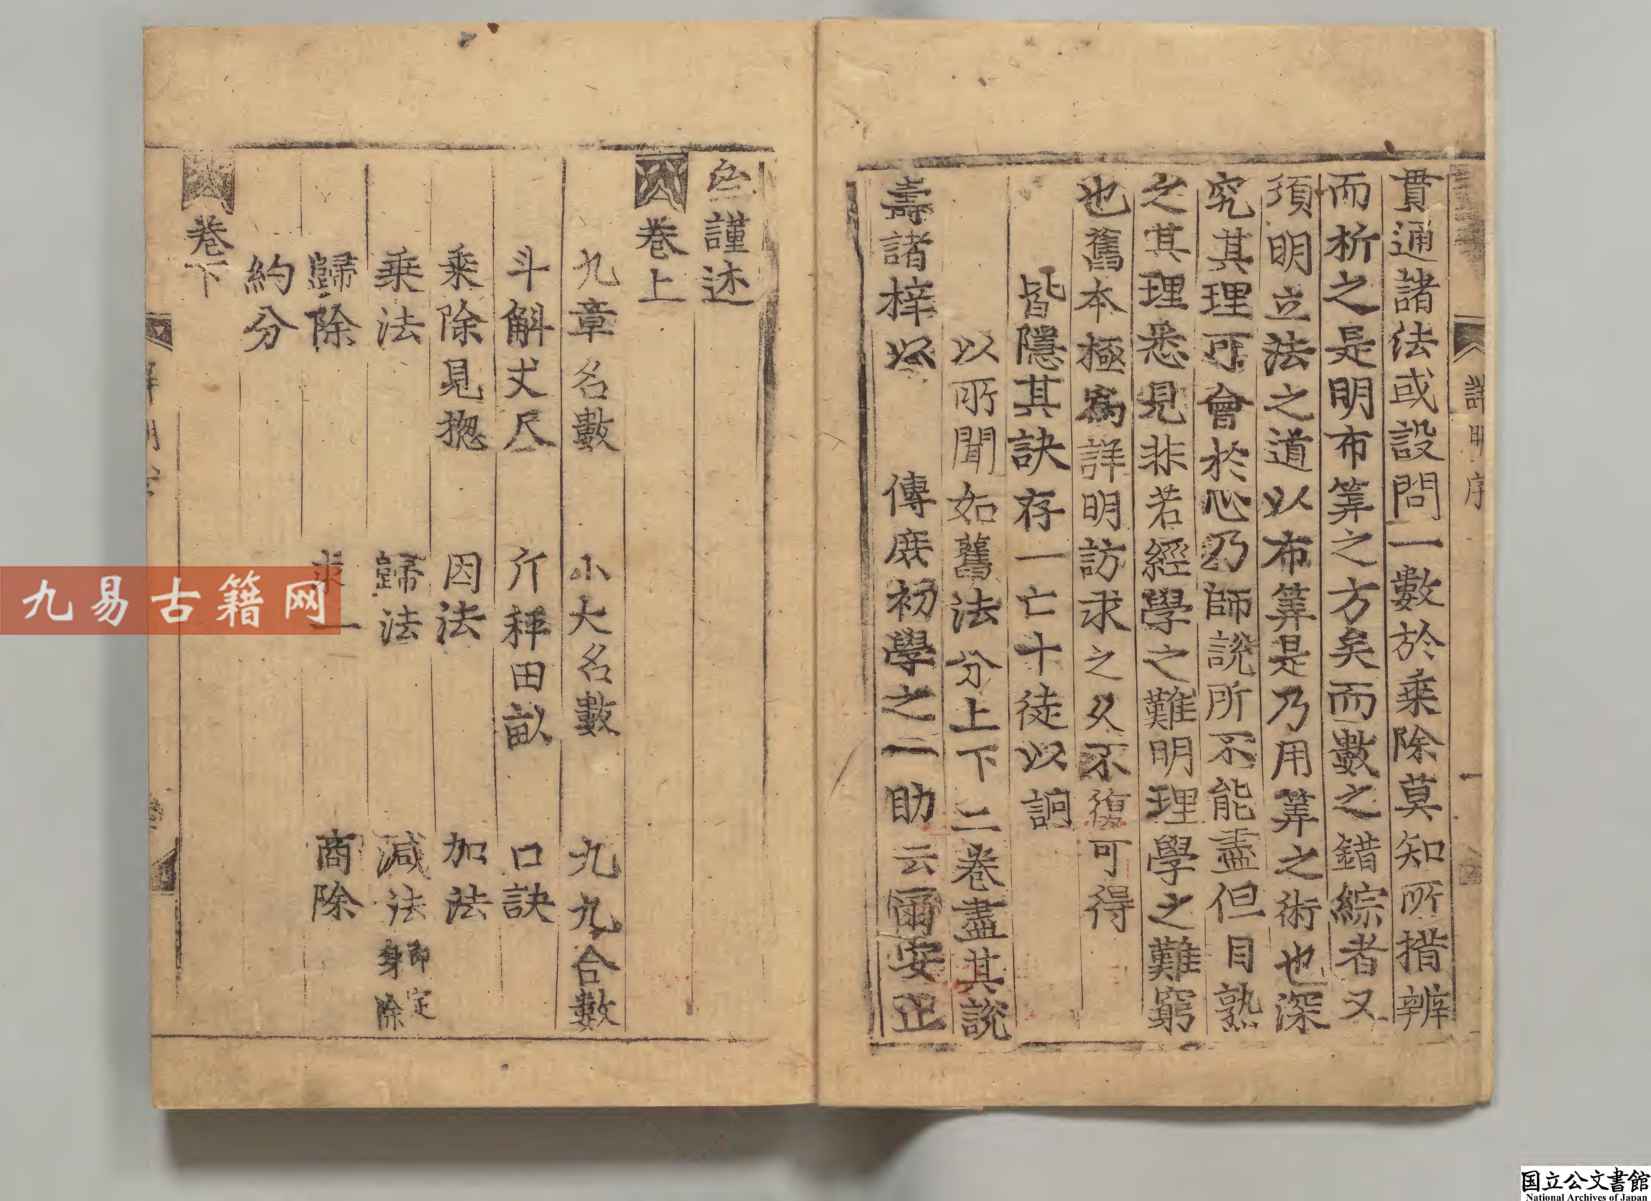 詳明序
一
貫通諸法或設問一數於乗除莫知所措辨
而析之是明布筭之方矣而數之錯綜者又
須明立法之道以布筭是乃用筭之術也深
究其理可會於心乃師說所不能盡但目熟
之其理悉見非若經學之難明理學之難窮
也舊本極爲詳明訪求之久不復可得
皆隱其訣存一亡十徒以詗
以所聞如舊法分上下二卷盡其說
壽諸梓以 傳庶初學之一助云爾安止
謹述
卷上
九章名數 小大名數 九九合數
斗斛丈尺 斤秤田畝 口訣
乗除見揔 因法 加法
乗法 歸法 減法即定身除
歸除 求一 商除
約分
卷下
九易古籍网
国立公文書館
National Archives of Japan